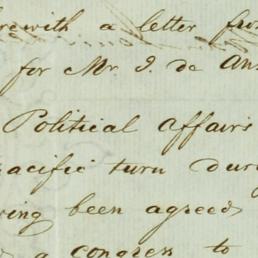 with a letter
for Mr J. de
Political Affairs
pacific turn
been agreed
a congress to